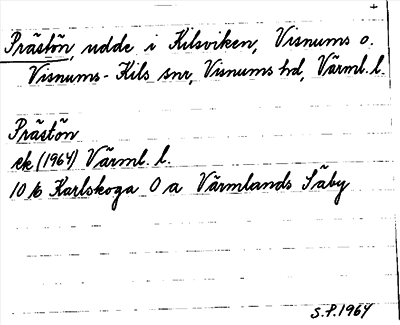 +
Prästön, udde i Kilsviken, Visnums o.
Visnums-Kils snr, Visnums hd, Värml. l.
Prästön
ek (1964) Värml. l.
10 6 Karlskoga O a Värmlands Säby
S.P. 1964